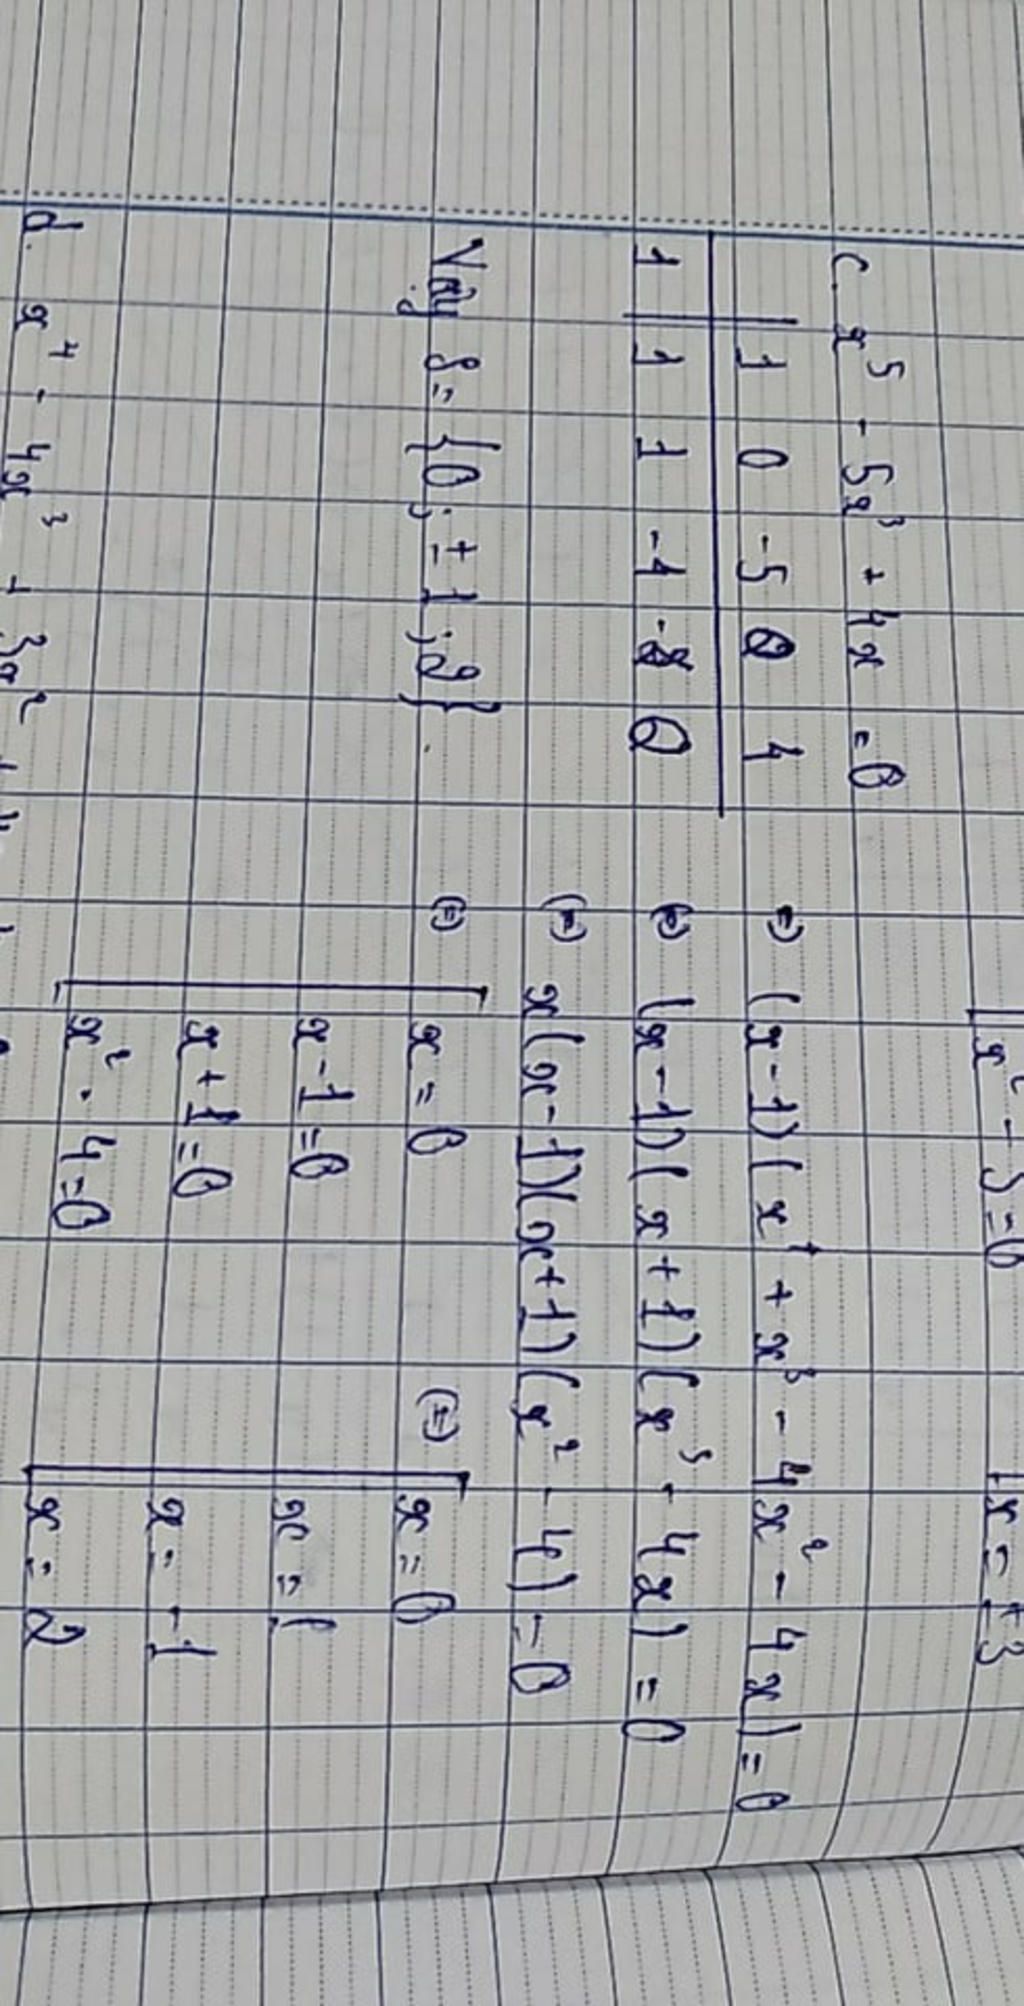 x² - 3 = 0
x = ±3
c. x⁵ - 5x³ + 4x = 0
1 0 -5 0 4
1 1 1 -4 -4 0
⇔ (x-1)(x⁴ + x³ - 4x² - 4x) = 0
⇔ (x-1)(x+1)(x³ - 4x) = 0
⇔ x(x-1)(x+1)(x² - 4) = 0
⇔ x = 0
x - 1 = 0
x + 1 = 0
x² - 4 = 0
⇔ x = 0
x = 1
x = -1
x = 2
Vậy S = {0; ±1; 2}.
d. x⁴ - 4x³ + 3x²